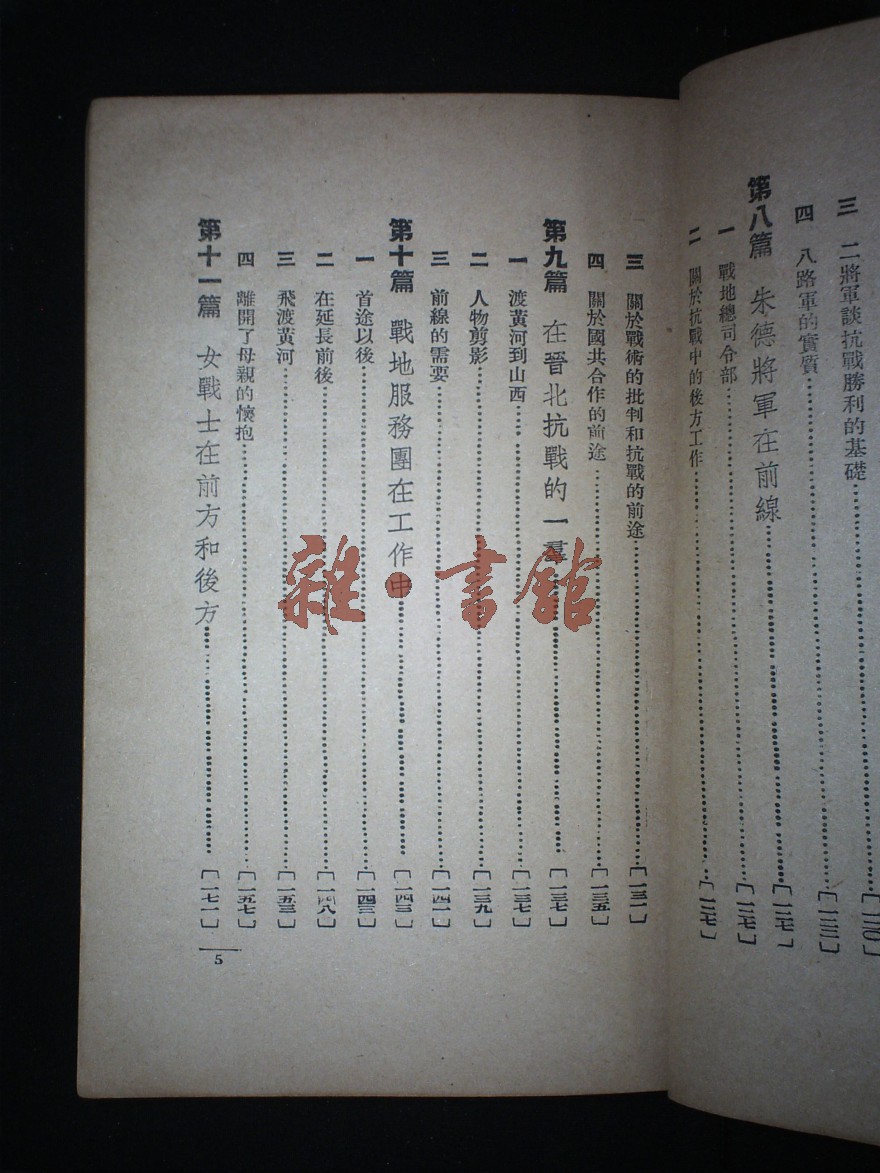 三 二將軍談抗戰勝利的基礎……〔一二〇〕
四 八路軍的實質……〔一二二〕
第八篇 朱德將軍在前線……〔一二七〕
一 戰地總司令部……〔一二七〕
二 關於抗戰中的後方工作……〔一二七〕
三 關於戰術的批判和抗戰的前途……〔一三一〕
四 關於國共合作的前途……〔一三五〕
第九篇 在晉北抗戰的一羣……〔一三七〕
一 渡黃河到山西……〔一三七〕
二 人物剪影……〔一三九〕
三 前線的需要……〔一四一〕
第十篇 戰地服務團在工作中……〔一四三〕
一 首途以後……〔一四三〕
二 在延長前後……〔一四八〕
三 飛渡黃河……〔一五三〕
四 離開了母親的懷抱……〔一五七〕
第十一篇 女戰士在前方和後方……〔一七一〕
5
雜·書館